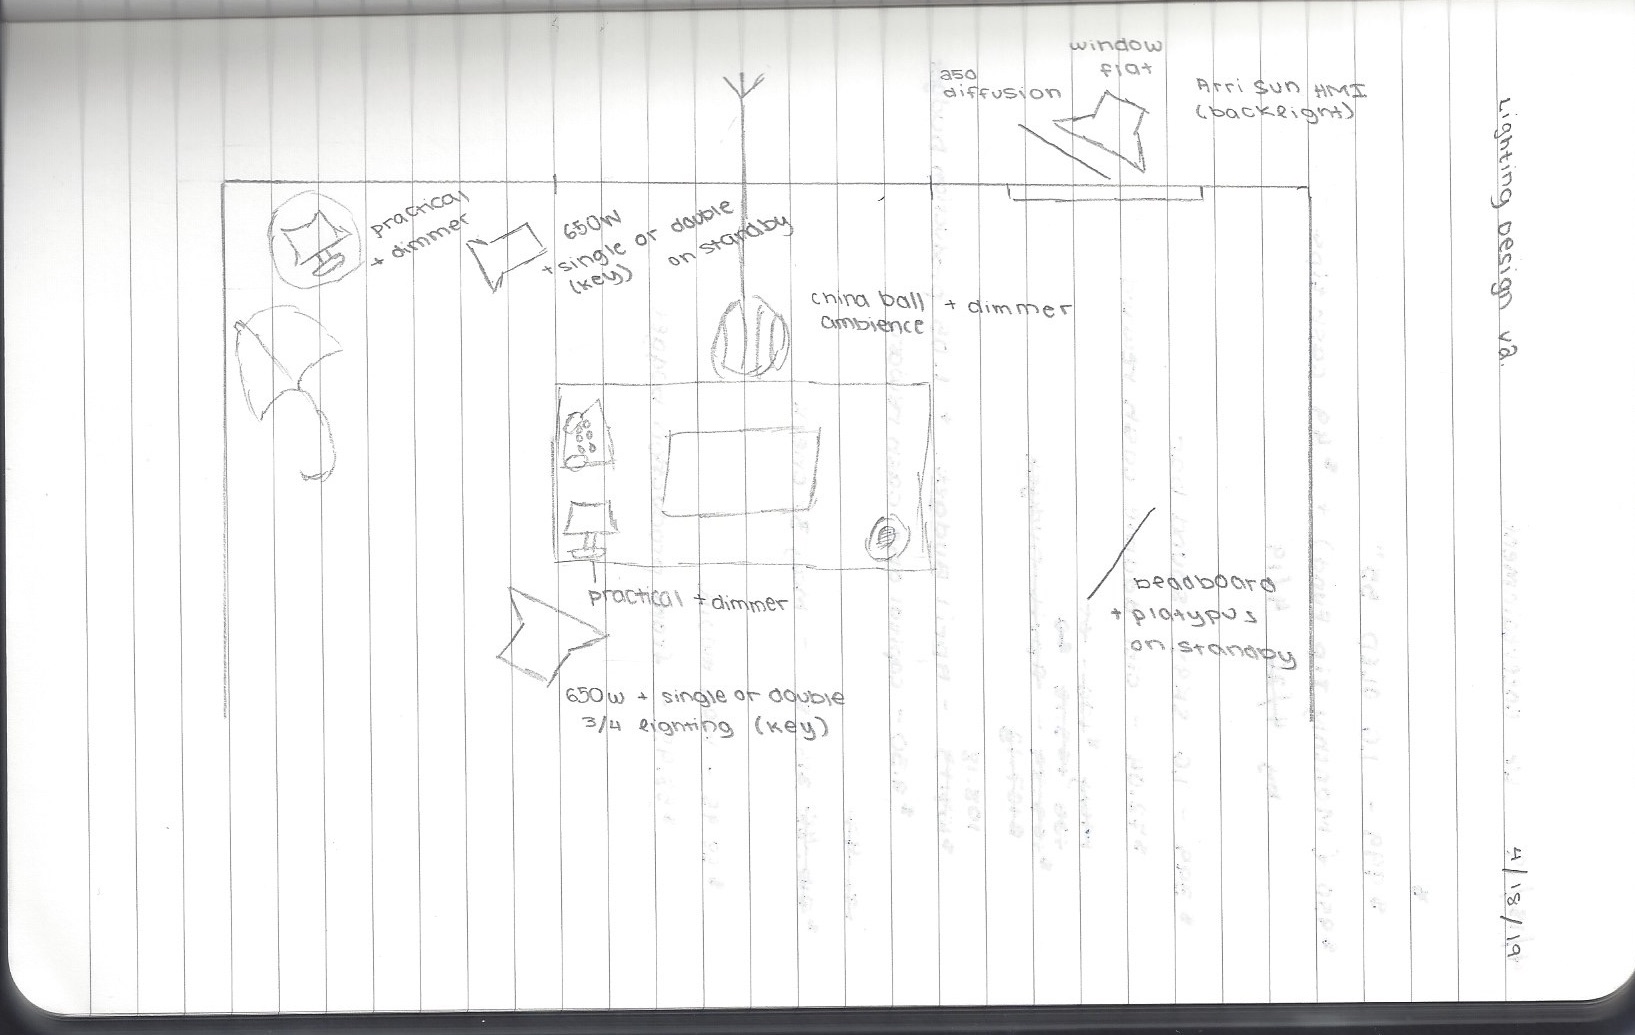 window
flat
250
diffusion
Arri Sun HMI
(backlight)
practical
+ dimmer
650W
+ single or double
(key)
on standby
china ball + dimmer
ambience
practical + dimmer
beadboard
+ platypus
on standby
650w + single or double
3/4 lighting (key)
Lighting Design v2
4/18/19